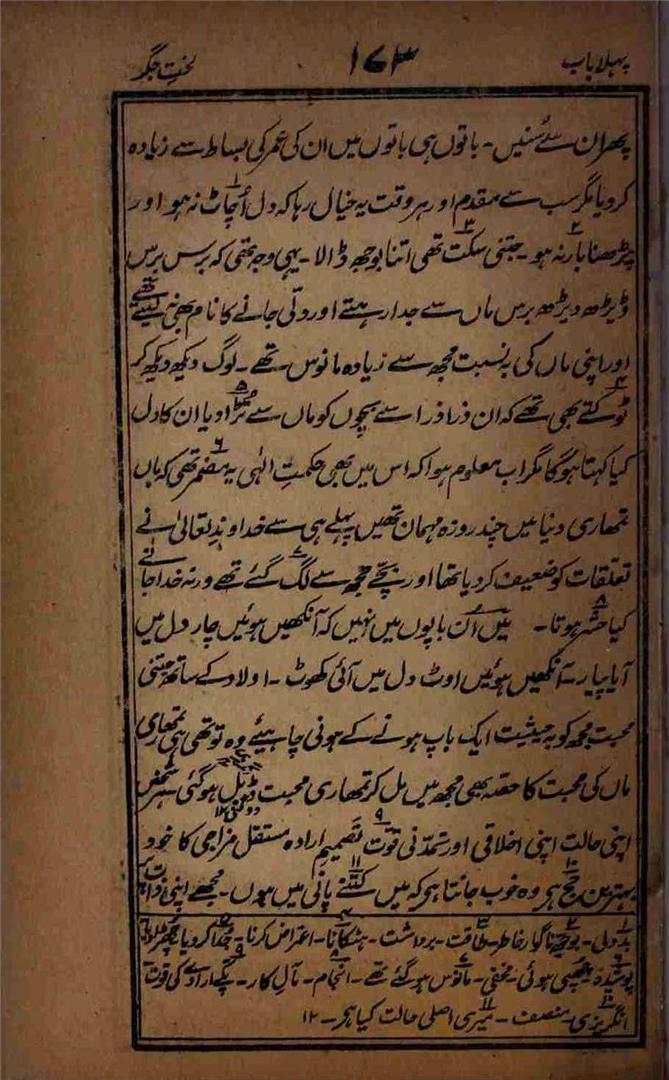 پہلا باب ۱۷۳ لختِ جگر
پھر ان سے سُنیں۔ باتوں ہی باتوں میں ان کی عمر کی بساط سے زیادہ
کر دیا مگر سب سے مقدم اور ہر وقت یہ خیال رہا کہ دل اُچاٹ۱ نہ ہو اور
پڑھنا بار۲ نہ ہو۔ جتنی سکت۳ تھی اتنا بوجھ ڈالا۔ یہی وجہ تھی کہ برس برس
ڈیڑھ ڈیڑھ برس ماں سے جدا رہتے اور دلّی جانے کا نام بھی نہ لیتے تھے
اور اپنی ماں کی بہ نسبت مجھ سے زیادہ مانوس تھے۔ لوگ دیکھ دیکھ کر
ٹوکتے۴ بھی تھے کہ ان ذرا ذرا سے بچوں کو ماں سے تُڑا۵ دیا ان کا دل
کیا کہتا ہوگا مگر اب معلوم ہوا کہ اس میں بھی حکمتِ الٰہی یہ مضمر۶ تھی کہ ماں
تمھاری دنیا میں چند روزہ مہمان تھیں پہلے ہی سے خداوند تعالیٰ نے
تعلقات کو ضعیف کر دیا تھا اور بچے مجھ سے لگ گئے۷ تھے ورنہ خدا جانے
کیا حشر۸ ہوتا۔ میں اُن باپوں میں نہیں کہ آنکھیں ہوئیں چار دل میں
آیا پیار۔ آنکھیں ہوئیں اوٹ دل میں آئی کھوٹ۔ اولاد کے ساتھ جتنی
محبت مجھ کو بہ حیثیت ایک باپ ہونے کے ہونی چاہیئے وہ تو تھی ہی تمھاری
ماں کی محبت کا حصّہ بھی مجھ میں مل کر تمھاری محبت ڈبل ہوگئی ہر شخص
دوگنی ۱۲
اپنی حالت اپنی اخلاقی اور تمدّنی قوّت تصمیمِ۹ ارادہ مستقل مزاجی کا خود
بہترین جج۱۰ ہے وہ خوب جانتا ہے کہ میں کتنے پانی میں ہوں۱۱۔ مجھے اپنی ذات
۱ بددلی۔ ۲ بوجھ ناگوار خاطر۔ ۳ طاقت۔ برداشت۔ ۴ ہٹکانا۔ اعتراض کرنا۔ ۵ جُدا کر دیا چھڑا دیا ۶
پوشیدہ چھپی ہوئی۔ مخفی۔ ۷ مانوس ہوگئے تھے۔ ۸ انجام۔ مآلِ کار۔ ۹ پکّے ارادے کی قوت
۱۰ انگریزی۔ منصف۔ ۱۱ میری اصلی حالت کیا ہے۔ ۱۲